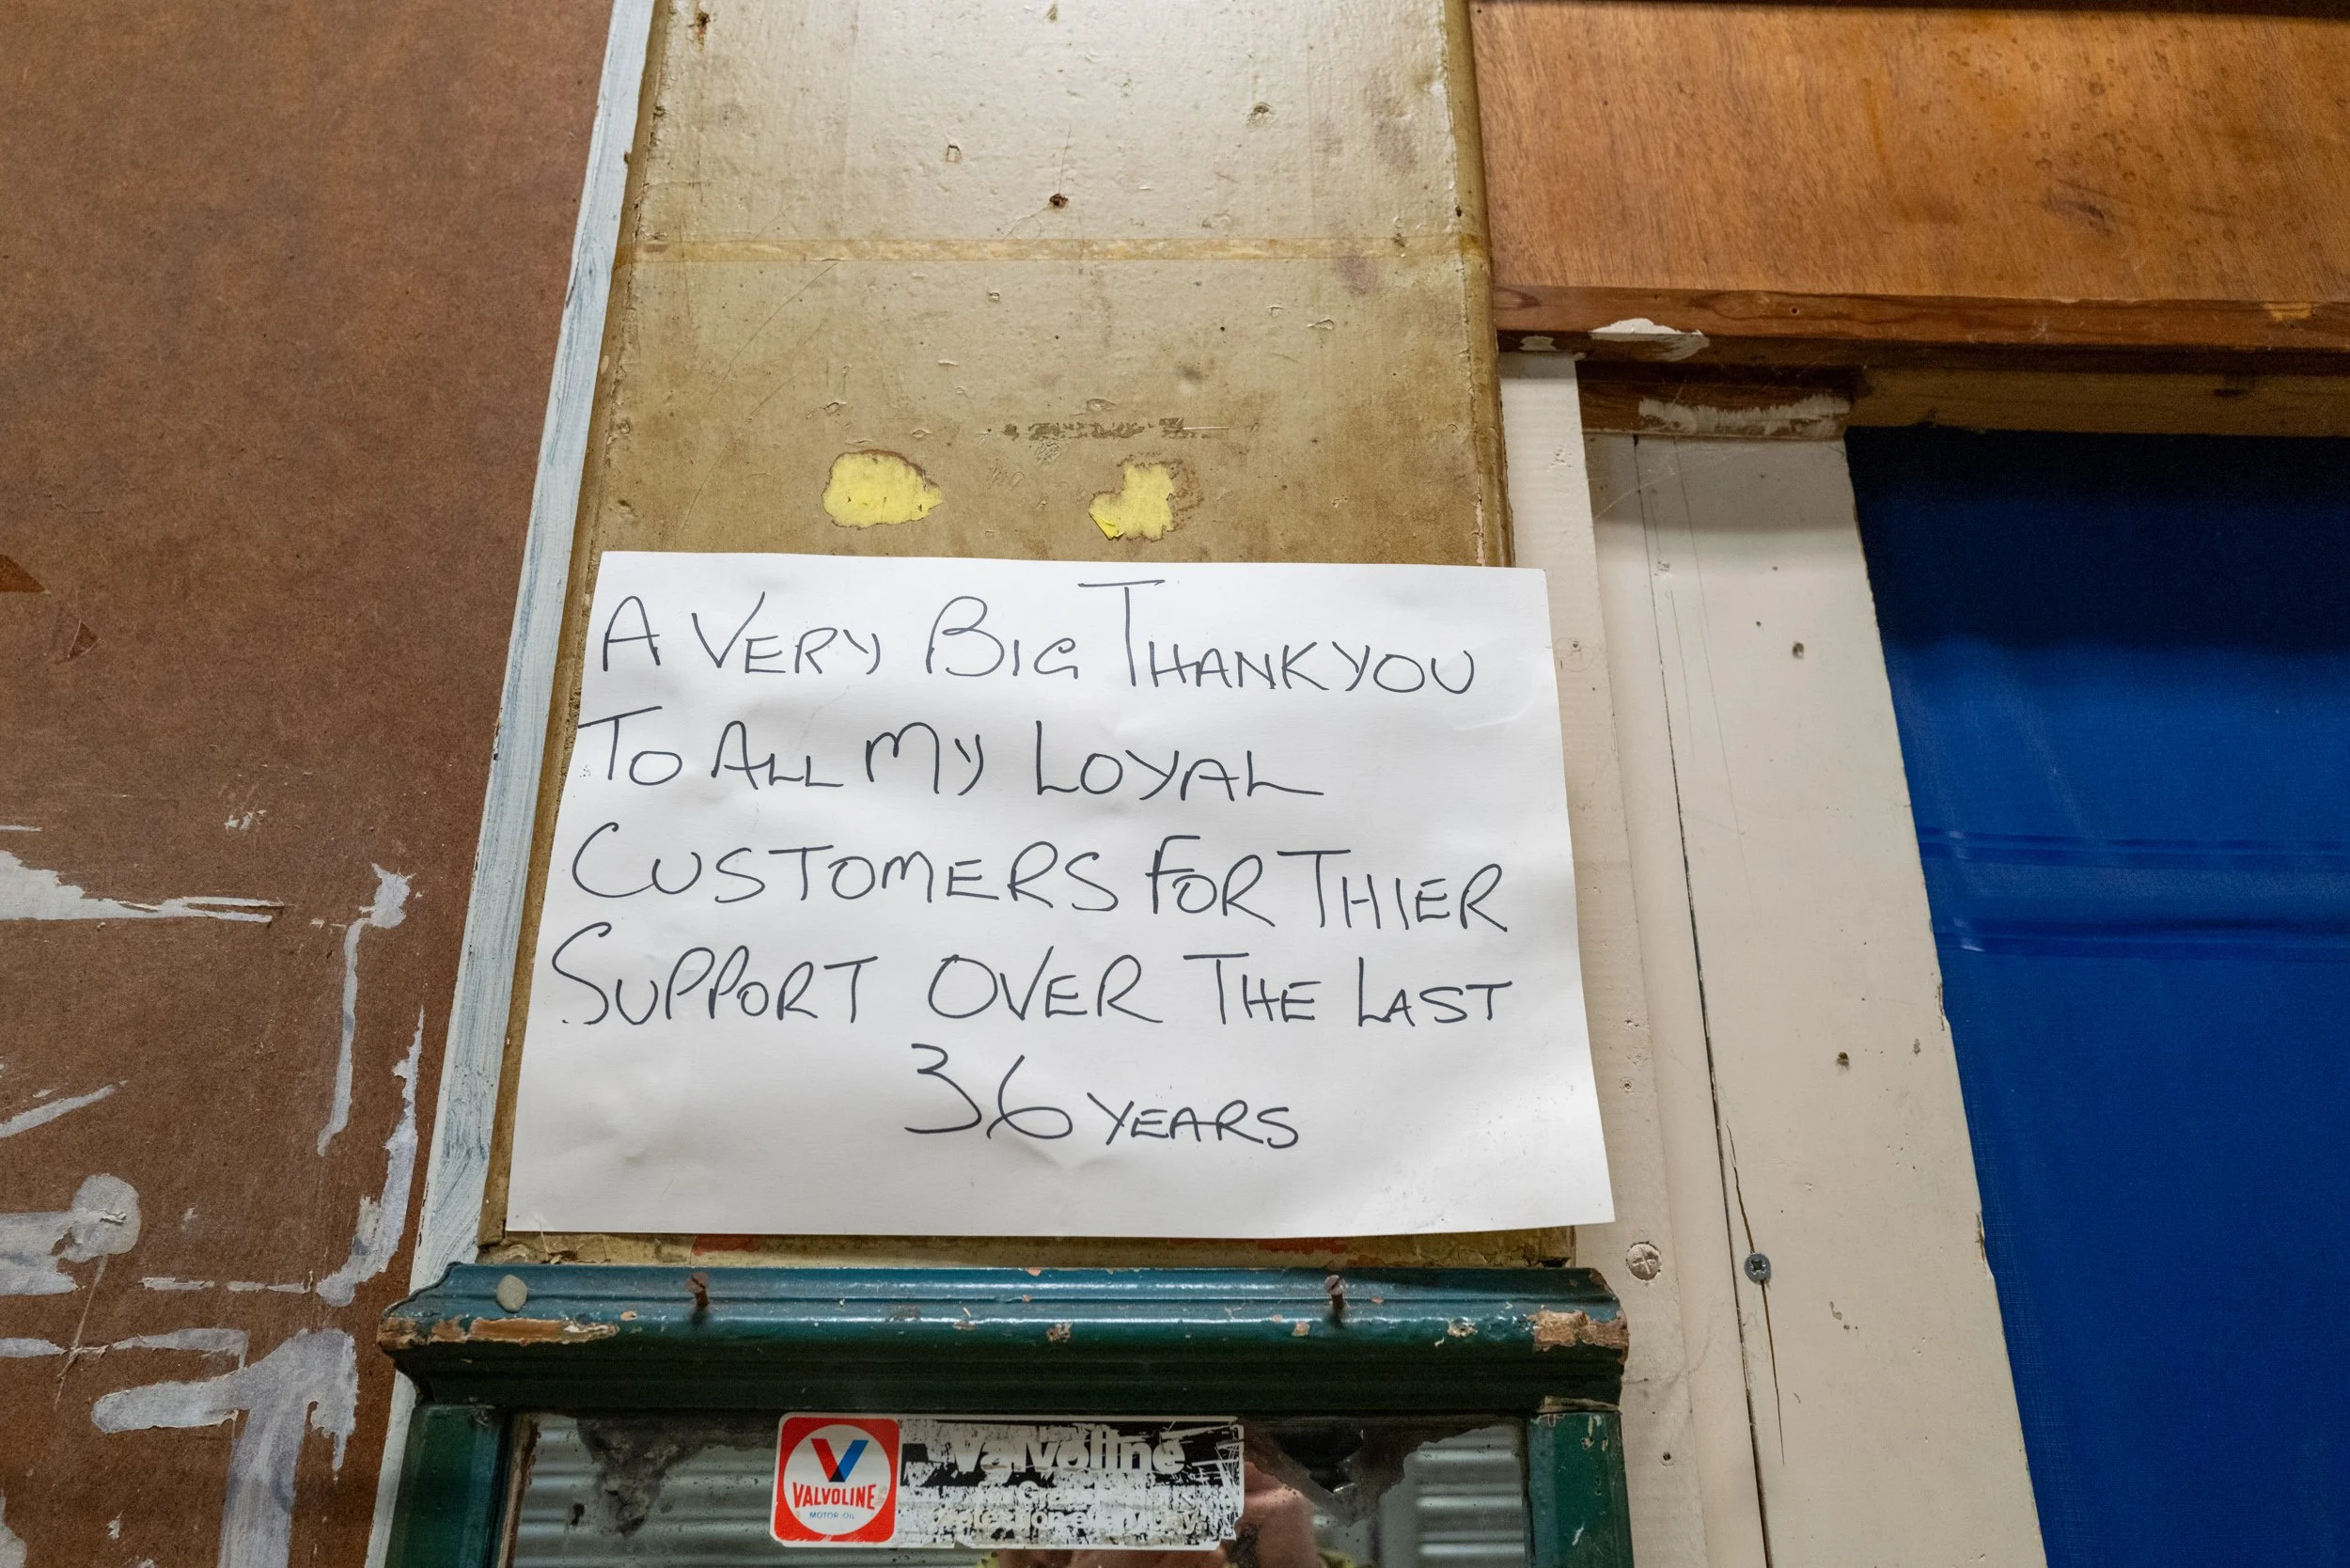 A VERY BIG THANKYOU
TO ALL MY LOYAL
CUSTOMERS FOR THIER
SUPPORT OVER THE LAST
36 YEARS
VALVOLINE
MOTOR OIL
Valvoline